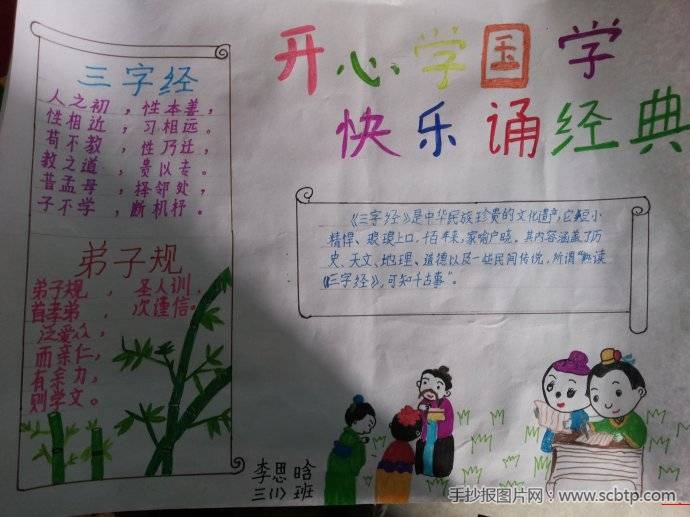 开心学国学
快乐诵经典
三字经
人之初，性本善，
性相近，习相远。
苟不教，性乃迁，
教之道，贵以专。
昔孟母，择邻处，
子不学，断机杼。
弟子规
弟子规，圣人训，
首孝弟，次谨信。
泛爱众，
而亲仁，
有余力，
则学文。
《三字经》是中华民族珍贵的文化遗产，它短小
精悍、琅琅上口，千百年来，家喻户晓。其内容涵盖了历
史、天文、地理、道德以及一些民间传说，所谓“熟读
《三字经》，可知千古事”。
李思晗
三(1)班
手抄报图片网：www.scbtp.com